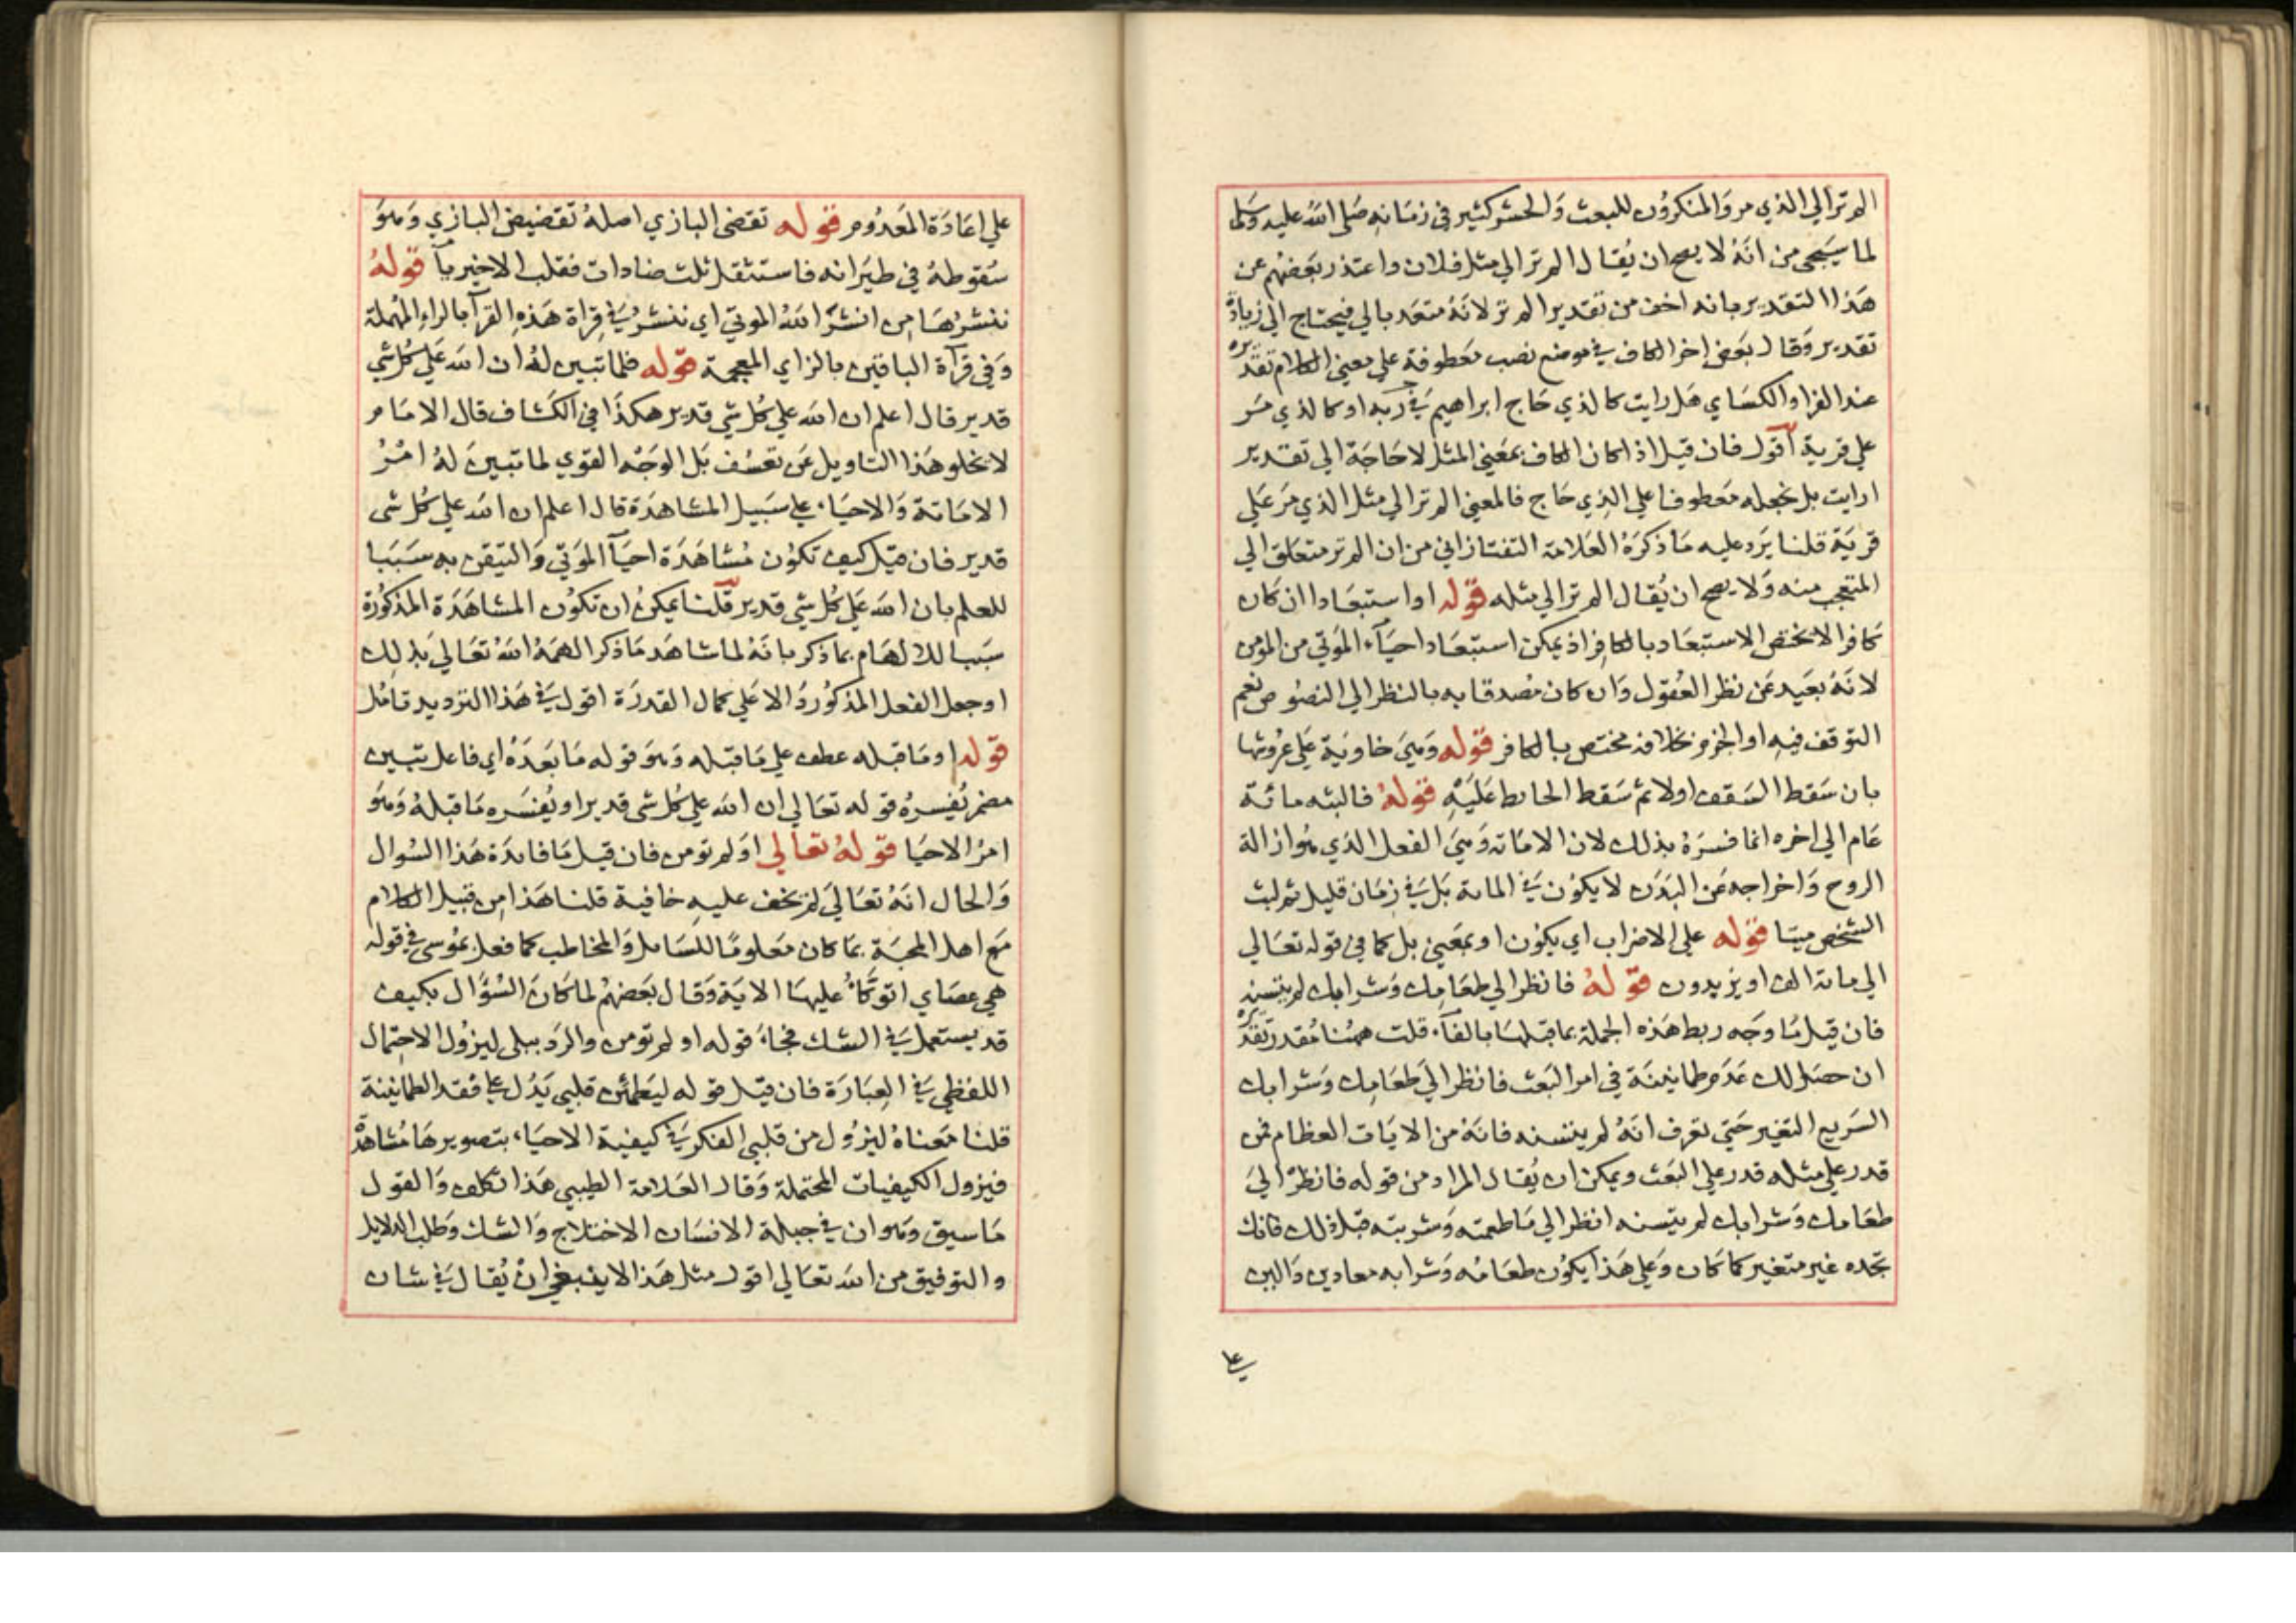 الم تر الي الذي مر والمنكرون للبعث والحشر كثير في زمانه صلى الله عليه وسلم
لما سيجي من انه لا يصح ان يقال الم تر الي مثل فلان واعتذر بعضهم عن
هذا التقدير بانه اخف من تقدير الم تر لانه متعد بالي فيحتاج الي زيادة
تقدير وقال بعض اخر الكاف في موضع نصب معطوفة علي معني الكلام تقديره
عند الفرا والكساي هل رايت كالذي حاج ابراهيم في ربه او كالذي مر
علي قرية اقول فان قيل اذا كان الكاف بمعني المثل لا حاجة الي تقدير
ارايت بل نجعله معطوفا علي الذي حاج فالمعني الم تر الي مثل الذي مر علي
قرية قلنا يرد عليه ما ذكره العلامة التفتازاني من ان الم تر متعلق الي
المتعجب منه ولا يصح ان يقال الم تر الي مثله قوله او استبعادا ان كان
كافرا لا يختص الاستبعاد بالكافر اذ يمكن استبعاد احياء الموتي من المومن
لانه بعيد عن نظر العقول وان كان مصدقا به بالنظر الي النصوص نعم
التوقف فيه او الجزم بخلافه مختص بالكافر قوله وهي خاوية علي عروشها
بان سقط السقف اولا ثم سقط الحايط عليه قوله فالبثه مائة
عام الي اخره انما فسره بذلك لان الاماتة وهي الفعل الذي هو ازالة
الروح واخراجه عن البدن لا يكون في الماية بل في زمان قليل ثم لبث
الشخص ميتا قوله علي الاضراب اي يكون او بمعني بل كما في قوله تعالي
الي ماية الف او يزيدون قوله فانظر الي طعامك وشرابك لم يتسنه
فان قيل ما وجه ربط هذه الجملة بما قبلها بالفاء قلت ههنا مقدر تقديره
ان حصل لك عدم طمانينة في امر البعث فانظر الي طعامك وشرابك
السريع التغير حتي تعرف انه لم يتسنه فانه من الايات العظام فمن
قدر علي مثله قدر علي البعث ويمكن ان يقال المراد من قوله فانظر الي
طعامك وشرابك لم يتسنه انظر الي ما طعمته وشربته قبل ذلك فانك
تجده غير متغير كما كان وعلي هذا يكون طعامه وشرابه معادين والبن
علي
علي اعادة المعدوم قوله تقضي البازي اصله تقضيض البازي وهو
سقوطه في طيرانه فاستثقل ثلث ضادات فقلب الاخير يآ قوله
ننشرها من انشر الله الموتي اي ننشر في قراة هذه القرآ بالراء المهملة
وفي قرآة الباقين بالزاي المعجمة قوله فلما تبين له ان الله علي كل شي
قدير قال اعلم ان الله علي كل شي قدير هكذا في الكشاف قال الامام
لا يخلو هذا التاويل عن تعسف بل الوجه القوي لما تبين له امر
الاماتة والاحياء علي سبيل المشاهدة قال اعلم ان الله علي كل شي
قدير فان قيل كيف تكون مشاهدة احيآ الموتي والتيقن به سببا
للعلم بان الله علي كل شي قدير قلنا يمكن ان تكون المشاهدة المذكورة
سببا للالهام بما ذكر بانه لما شاهد ما ذكر الهمه الله تعالي بذلك
او جعل الفعل المذكور دالا علي كمال القدرة اقول في هذا الترديد تامل
قوله او ما قبله عطف علي ما قبله وهو قوله ما بعده اي فاعل تبين
مضمر يفسره قوله تعالي ان الله علي كل شي قدير او يفسره ما قبله وهو
امر الاحيا قوله تعالي اولم تومن فان قيل ما فايدة هذا السوال
والحال انه تعالي لم يخف عليه خافية قلنا هذا من قبيل الكلام
مع اهل المحبة بما كان معلوما للسايل والمخاطب كما فعل بموسي في قوله
هي عصاي اتوكاء عليها الاية وقال بعضهم لما كان السؤال بكيف
قد يستعمل في الشك فجاء قوله اولم تومن والرد ببلي ليزول الاحتمال
اللفظي في العبارة فان قيل قوله ليطمئن قلبي يدل علي فقد الطمانينة
قلنا معناه ليزول من قلبي الفكر في كيفية الاحياء بتصويرها مشاهدة
فيزول الكيفيات المحتملة وقال العلامة الطيبي هذا تكلف والقول
ما سبق وهو ان في جبلة الانسان الاختلاج والشك وطلب الدلايل
والتوفيق من الله تعالي اقول مثل هذا لا ينبغي ان يقال في شان